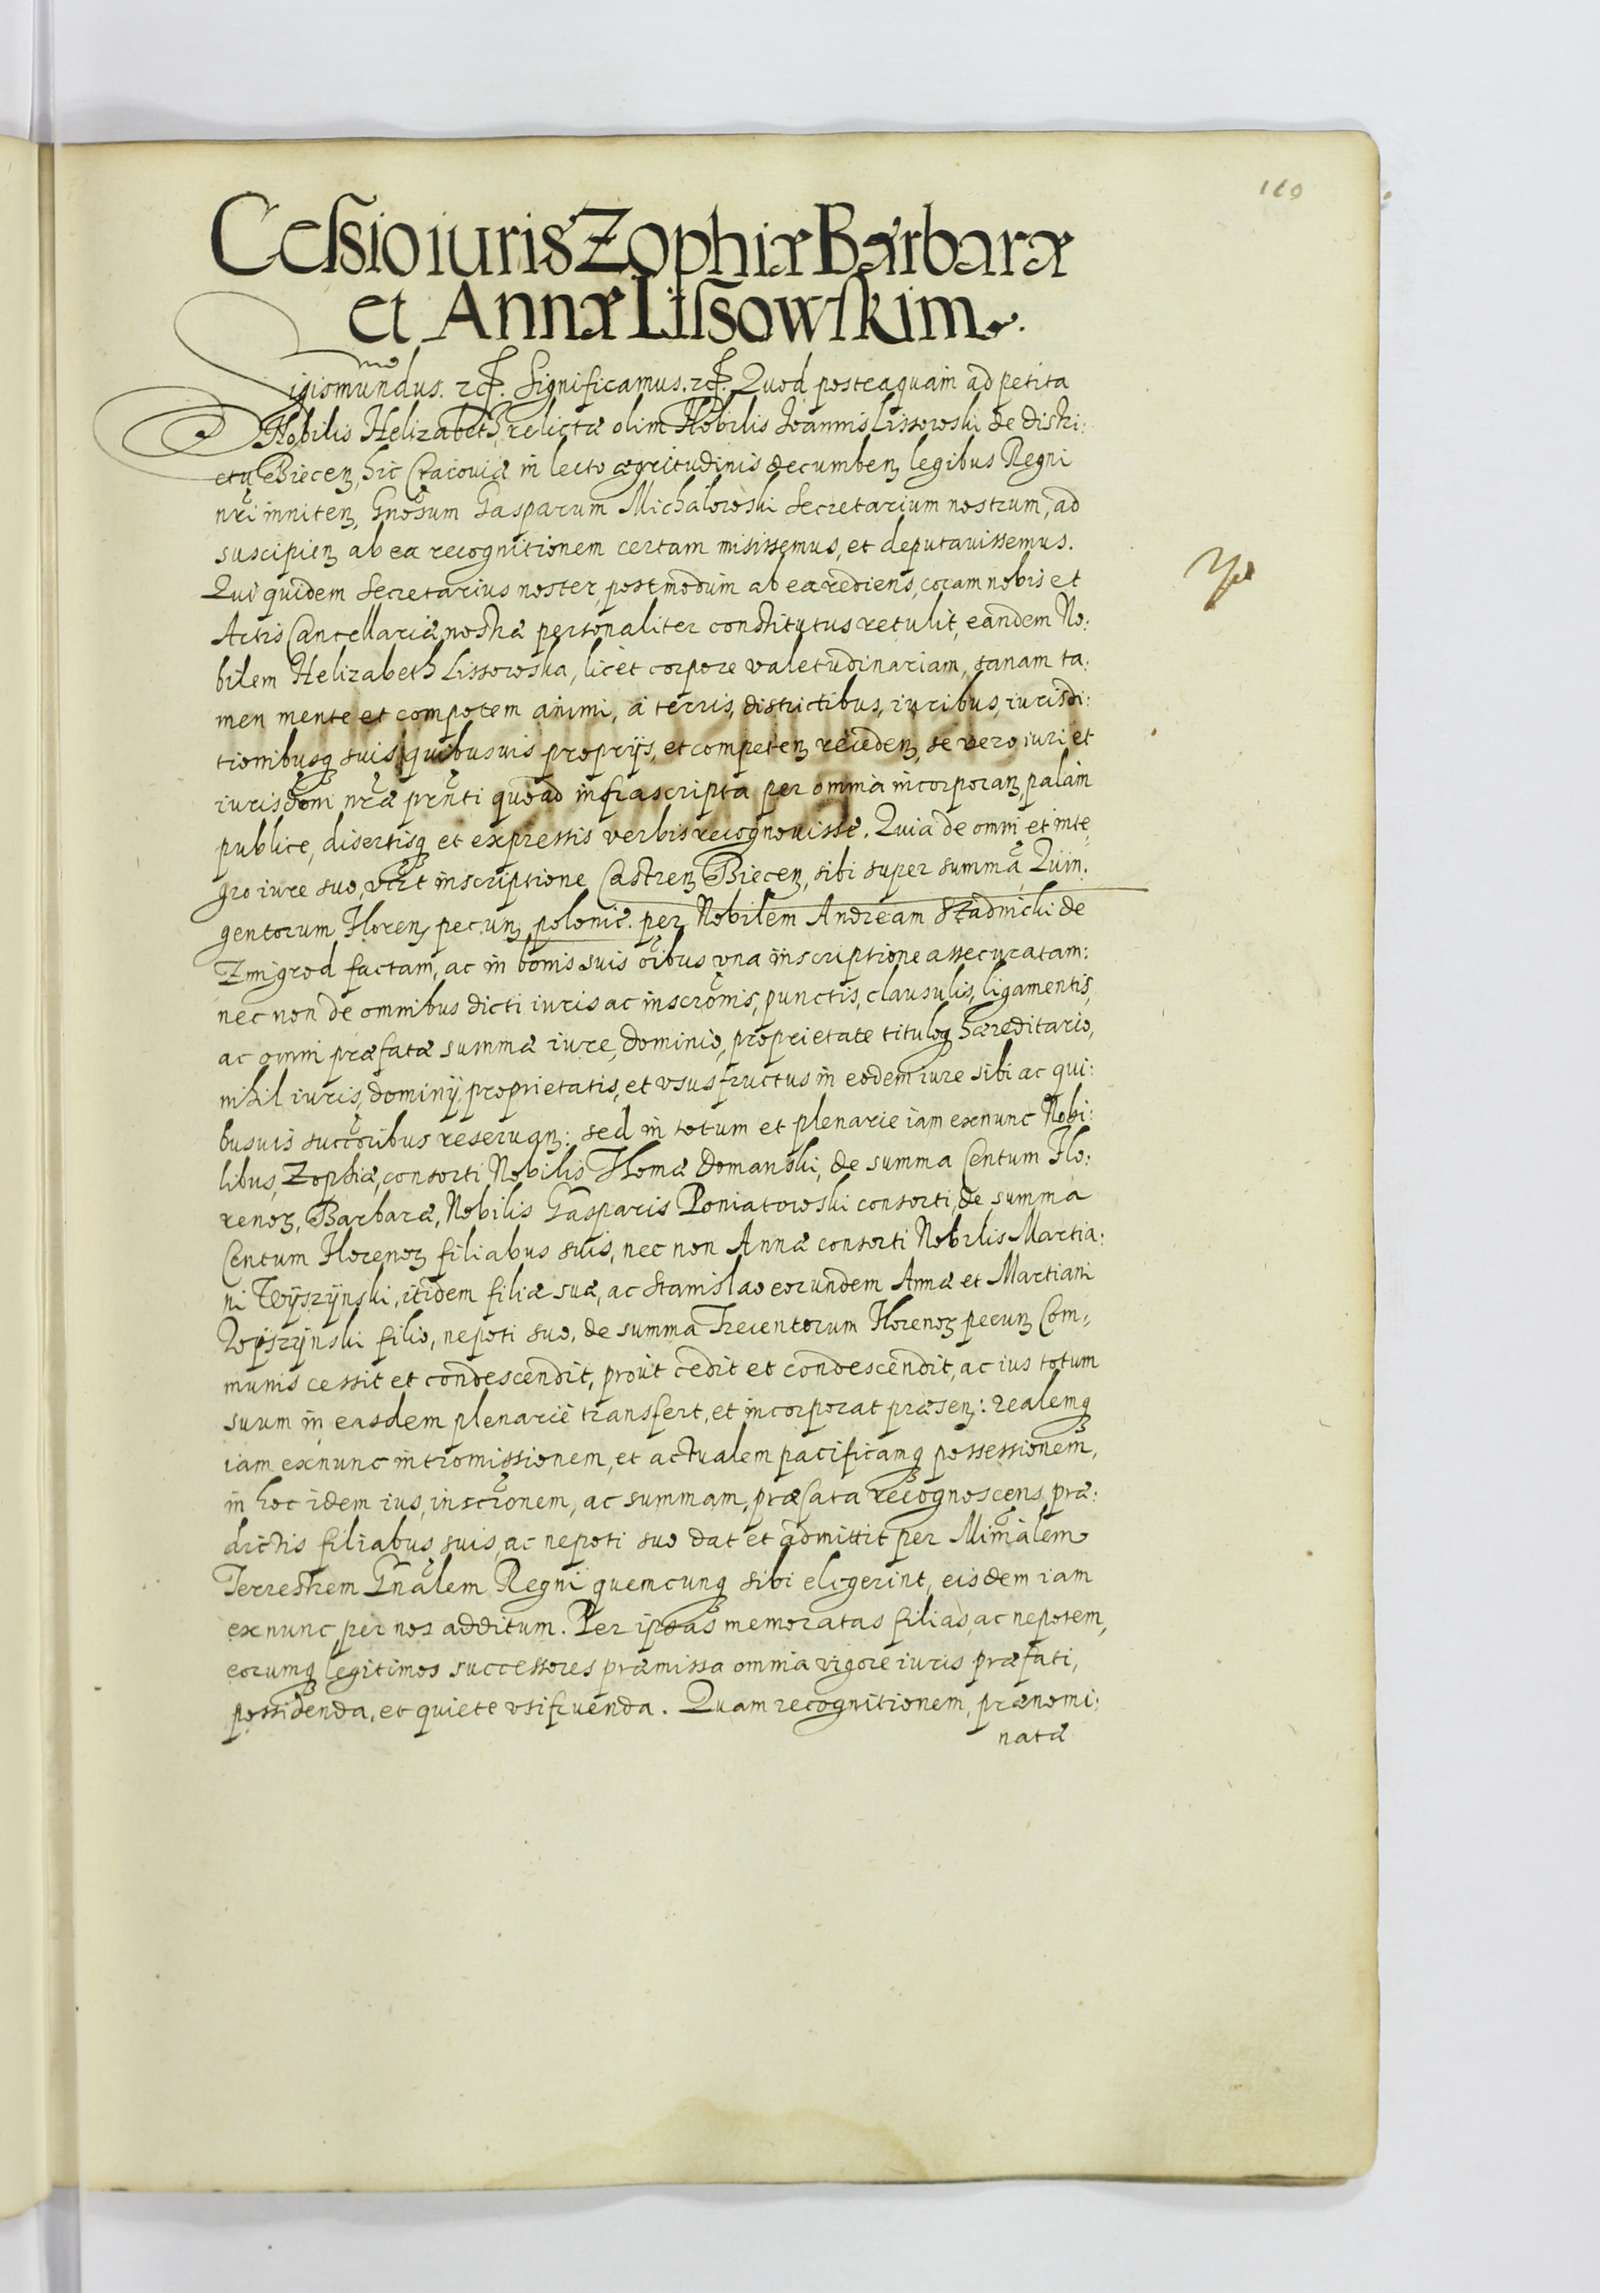 169
Cessio iuris Zophiæ Barbaræ
et Annæ Lissowskim
Sigismundus. Significamus. Quod posteaquam ad petita
Nobilis Helizabeth, relictæ olim Nobilis Joannis Lissowski de distri:
ctu Biecen, hic Cracouiæ in lecto ægritudinis decumben, legibus Regni
nri inniten, Gnosum Gasparum Michalowski Secretarium nostrum, ad
suscipien ab ea recognitionem certam misissemus, et deputauissemus.
Qui quidem Secretarius noster, postmodum ab ea rediens, coram nobis et
Actis Cancellariæ nostræ personaliter constitutus retulit, eandem No:
bilem Helizabeth Lissowska, licet corpore valetudinariam, sanam ta:
men mente et compotem animi, a terris, districtibus, iuribus, iurisdi:
tionibusq suis quibusuis proprijs, et competen recedens, se vero iuri et
iurisdoni nræ prnti quoad infrascripta per omnia incorporan, palam
publice, disertisq et expressis verbis recognouisse. Quia de omni et inte,
gro iure suo, vert inscriptione Castren Biecen, sibi super summa Quin.
gentorum Floren pecun polonic. per Nobilem Andream Stadnicki de
Zmigrod factam, ac in bonis suis oibus vna inscriptione assecuratam:
nec non de omnibus dicti iuris ac inscronis, punctis, clausulis, ligamentis,
ac omni præfatæ summæ iure, dominio, proprietate tituloq hæreditario,
nihil iuris, dominij proprietatis, et vsusfructus in eodem iure sibi ac qui:
busuis succoribus reseruan: sed in totum et plenarie iam exnunc Nobi:
libus, Zophiæ, consorti Nobilis Thomæ Domanski, de summa Centum Flo:
renor, Barbaræ, Nobilis Gasparis Poniatowski consorti, de summa
Centum Florenor filiabus suis, nec non Annæ consorti Nobilis Martia:
ni Wÿszÿnski, itidem filiæ suæ, ac Stanislao eorundem Annæ et Martiani
Wÿszÿnski filio, nepoti suo, de summa Trecentorum Florenor pecun Com,
munis cessit et condescendit, prout cedit et condescendit, ac ius totum
suum in easdem plenarie transfert, et incorporat præsen: realemq
iam exnunc intromissionem, et actualem pacificamq possessionem,
in hoc idem ius, inscrionem, ac summam, præfata recognoscens, præ:
dictis filiabus suis, ac nepoti suo dat et admittit per Minialem
Terrestrem Gnalem Regni quemcunq sibi elegerint, eisdem iam
exnunc per nos additum. Per ipsas memoratas filias, ac nepotem,
eorumq legitimos successores præmissa omnia vigore iuris præfati,
possidenda, et quiete vsifruenda. Quam recognitionem, prænomi:
natæ